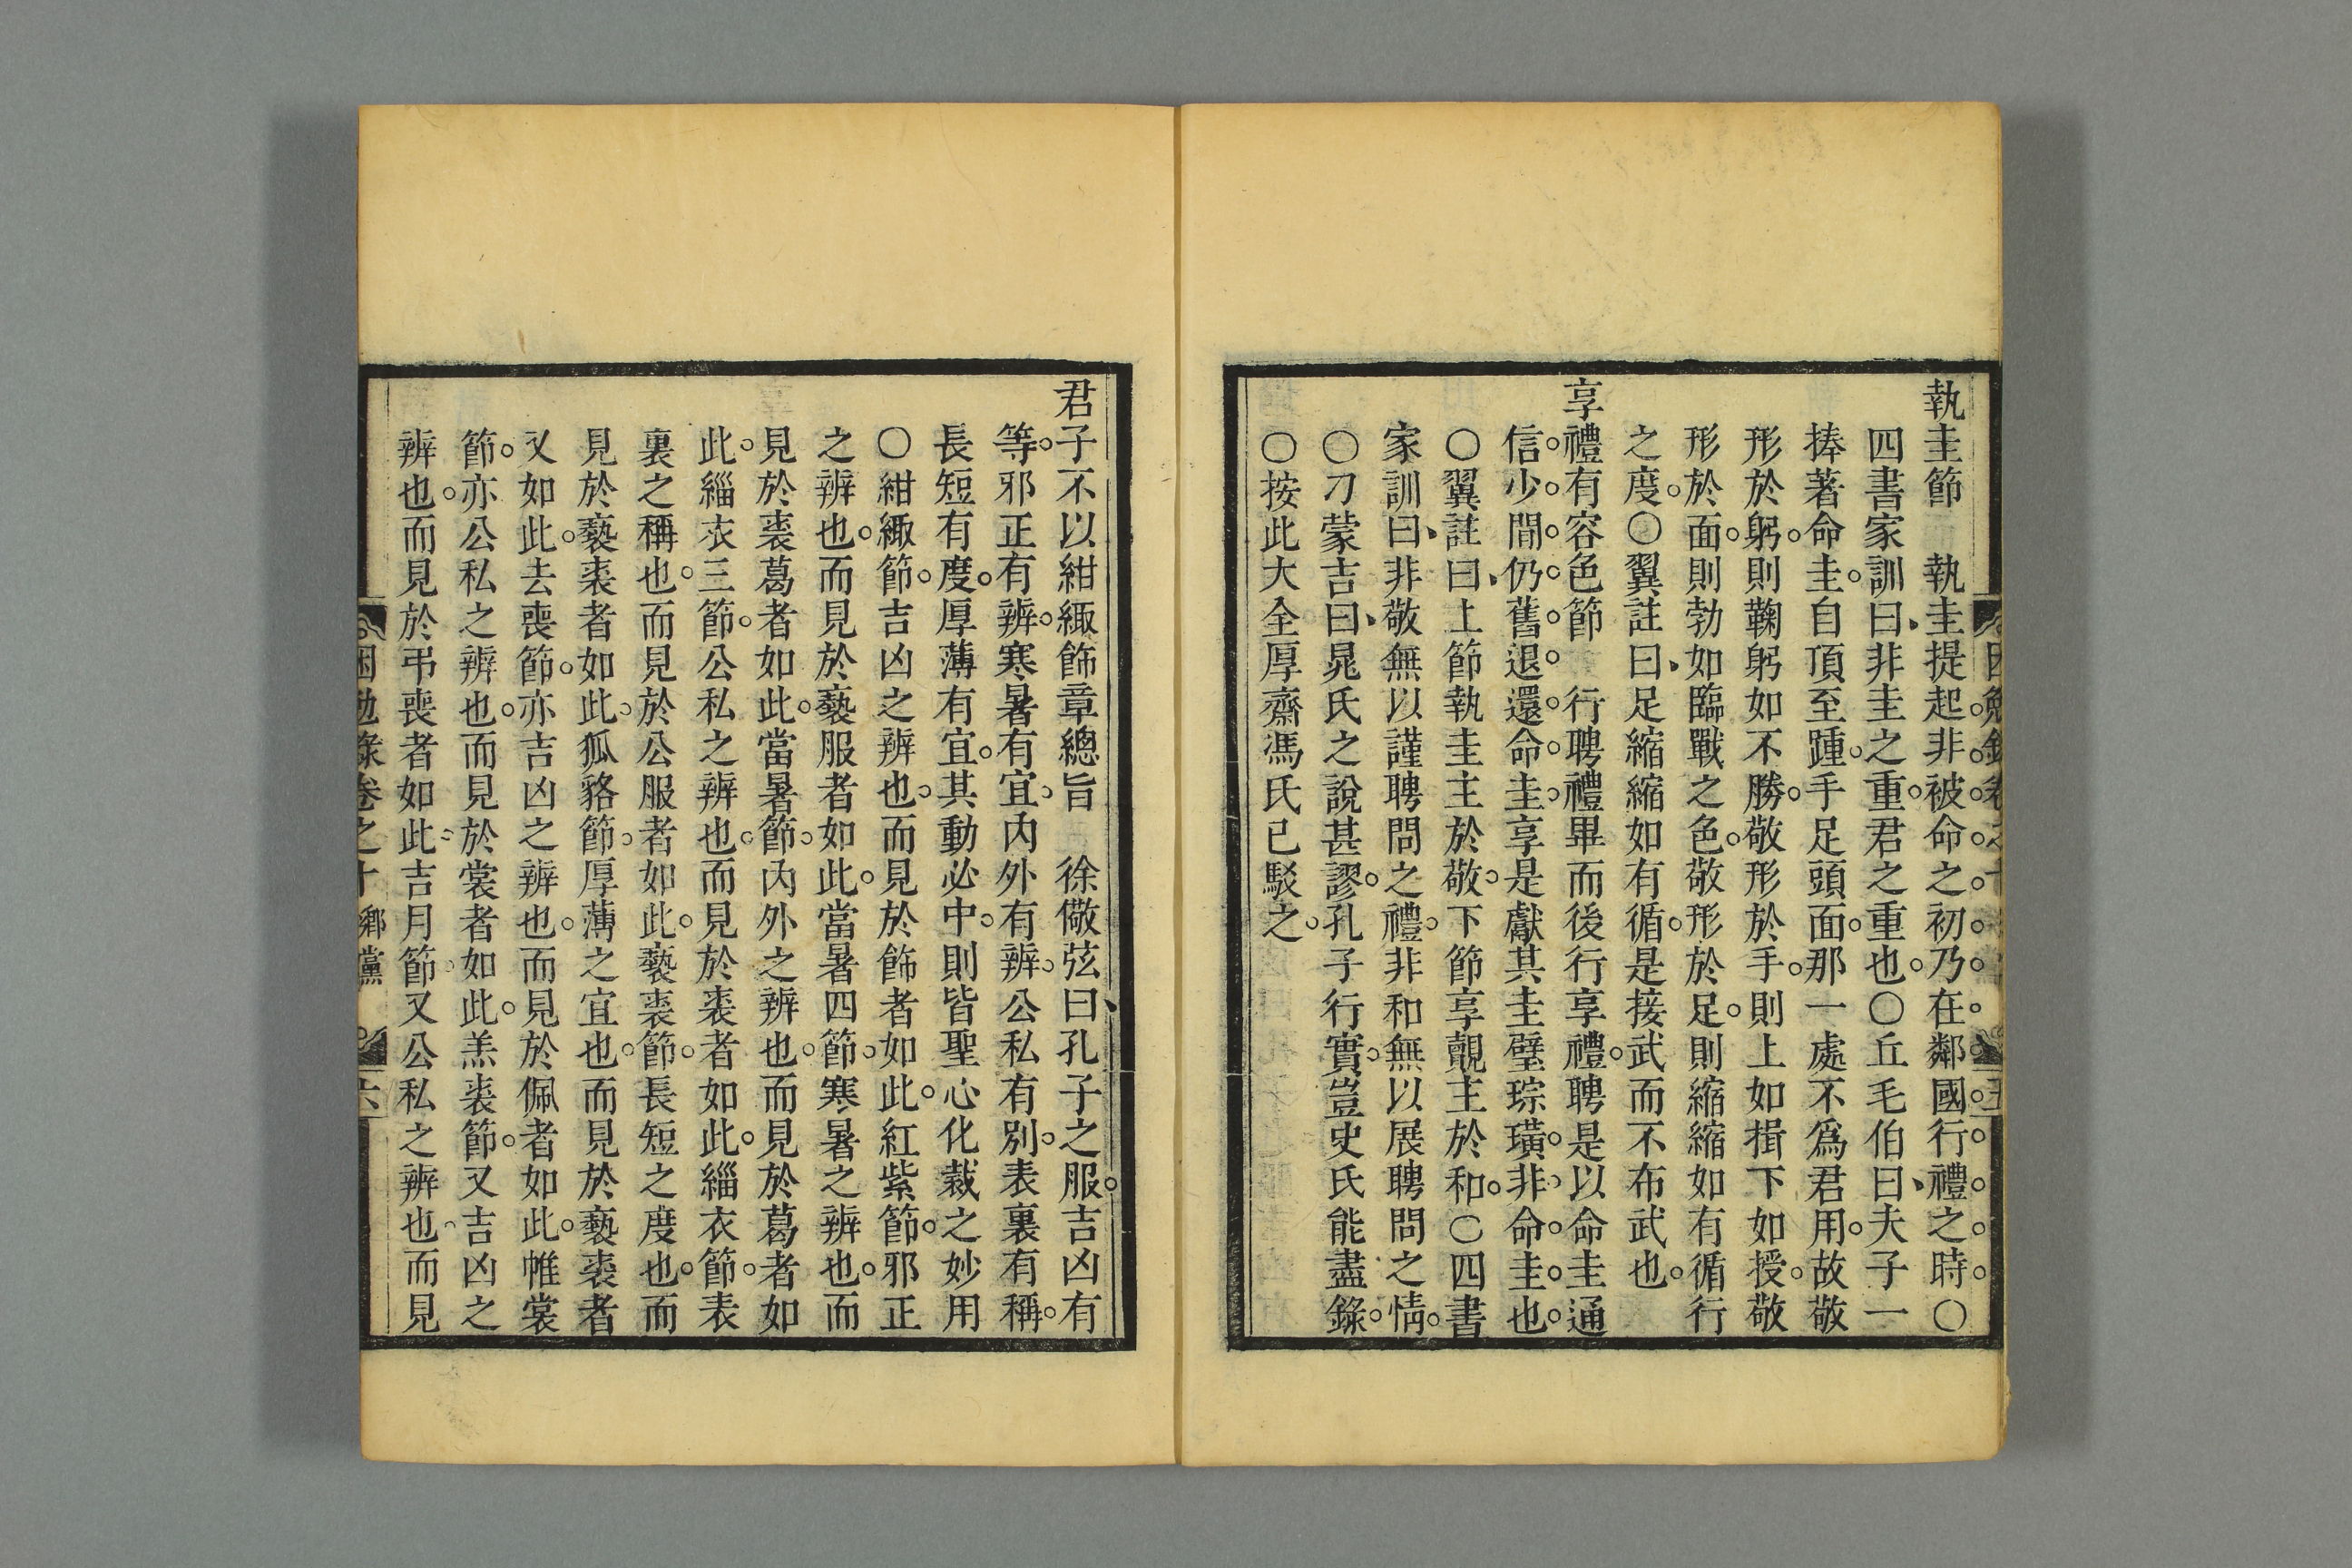 執圭節　執圭提起非被命之初乃在鄰國行禮之時〇
四書家訓曰非圭之重君之重也〇丘毛伯曰夫子一
捧著命圭自頂至踵手足頭面那一處不爲君用故敬
形於躬則鞠躬如不勝敬形於手則上如揖下如授敬
形於面則勃如臨戰之色敬形於足則縮縮如有循行
之度〇翼註曰足縮縮如有循是接武而不布武也
享禮有容色節　行聘禮畢而後行享禮聘是以命圭通
信少間仍舊退還命圭享是獻其圭璧琮璜非命圭也
〇翼註曰上節執圭主於敬下節享覿主於和〇四書
家訓曰非敬無以謹聘問之禮非和無以展聘問之情
〇刁蒙吉曰晁氏之說甚謬孔子行實豈史氏能盡錄
〇按此大全厚齋馮氏已駁之
君子不以紺緅飾章總旨　徐儆弦曰孔子之服吉凶有
等邪正有辨寒暑有宜內外有辨公私有別表裏有稱
長短有度厚薄有宜其動必中則皆聖心化裁之妙用
〇紺緅節吉凶之辨也而見於飾者如此紅紫節邪正
之辨也而見於褻服者如此當暑四節寒暑之辨也而
見於裘葛者如此當暑節內外之辨也而見於葛者如
此緇衣三節公私之辨也而見於裘者如此緇衣節表
裏之稱也而見於公服者如此褻裘節長短之度也而
見於褻裘者如此狐貉節厚薄之宜也而見於褻裘者
又如此去喪節亦吉凶之辨也而見於佩者如此帷裳
節亦公私之辨也而見於裳者如此羔裘節又吉凶之
辨也而見於弔喪者如此吉月節又公私之辨也而見
困勉錄卷之十　鄉黨　六